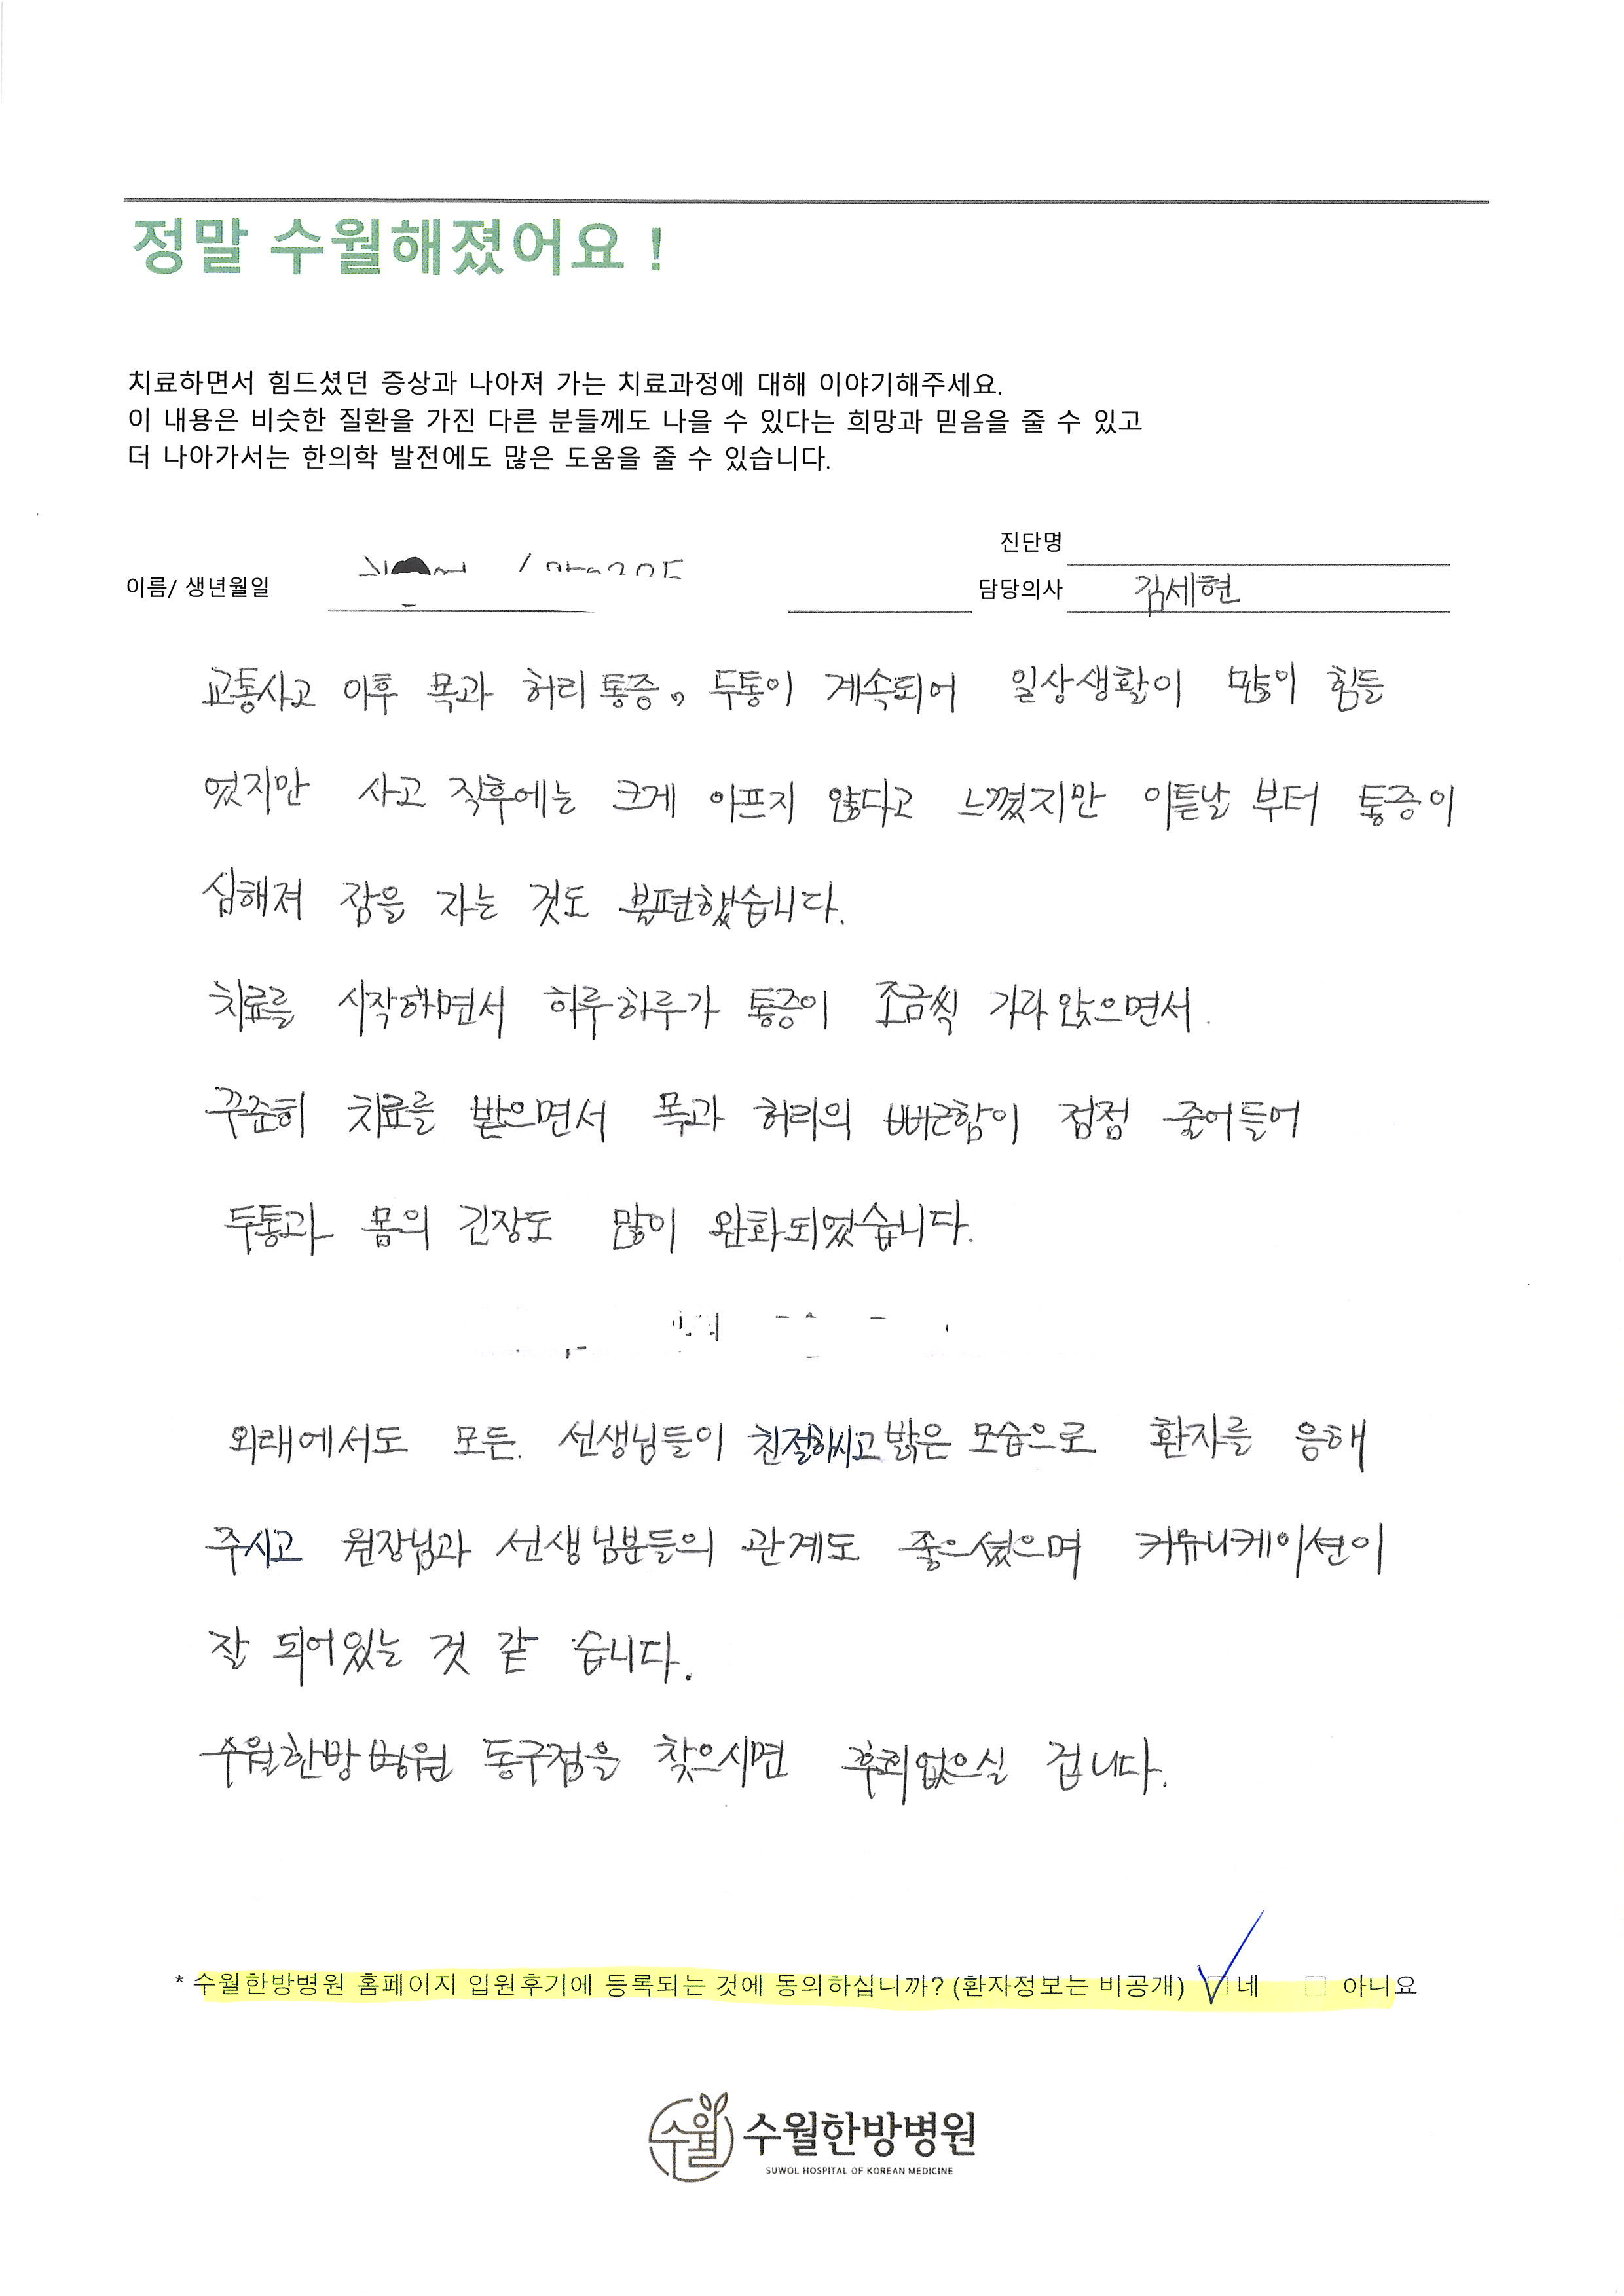 정말 수월해졌어요 !
치료하면서 힘드셨던 증상과 나아져 가는 치료과정에 대해 이야기해주세요.
이 내용은 비슷한 질환을 가진 다른 분들께도 나을 수 있다는 희망과 믿음을 줄 수 있고
더 나아가서는 한의학 발전에도 많은 도움을 줄 수 있습니다.
진단명
이름/ 생년월일
담당의사 김세현
교통사고 이후 목과 허리 통증, 두통이 계속되어 일상생활이 많이 힘들
었지만 사고 직후에는 크게 아프지 않다고 느꼈지만 이튿날 부터 통증이
심해져 잠을 자는 것도 불편했습니다.
치료를 시작하면서 하루하루가 통증이 조금씩 가라앉으면서.
꾸준히 치료를 받으면서 목과 허리의 뻐근함이 점점 줄어들어
두통과 몸의 긴장도 많이 완화되었습니다.
외래에서도 모든. 선생님들이 친절하시고 밝은 모습으로 환자를 응해
주시고 원장님과 선생님분들의 관계도 좋으셨으며 커뮤니케이션이
잘 되어있는 것 같 습니다.
수월한방병원 동구점을 찾으시면 후회없으실 겁니다.
* 수월한방병원 홈페이지 입원후기에 등록되는 것에 동의하십니까? (환자정보는 비공개) 네 아니요
수월 수월한방병원
SUWOL HOSPITAL OF KOREAN MEDICINE